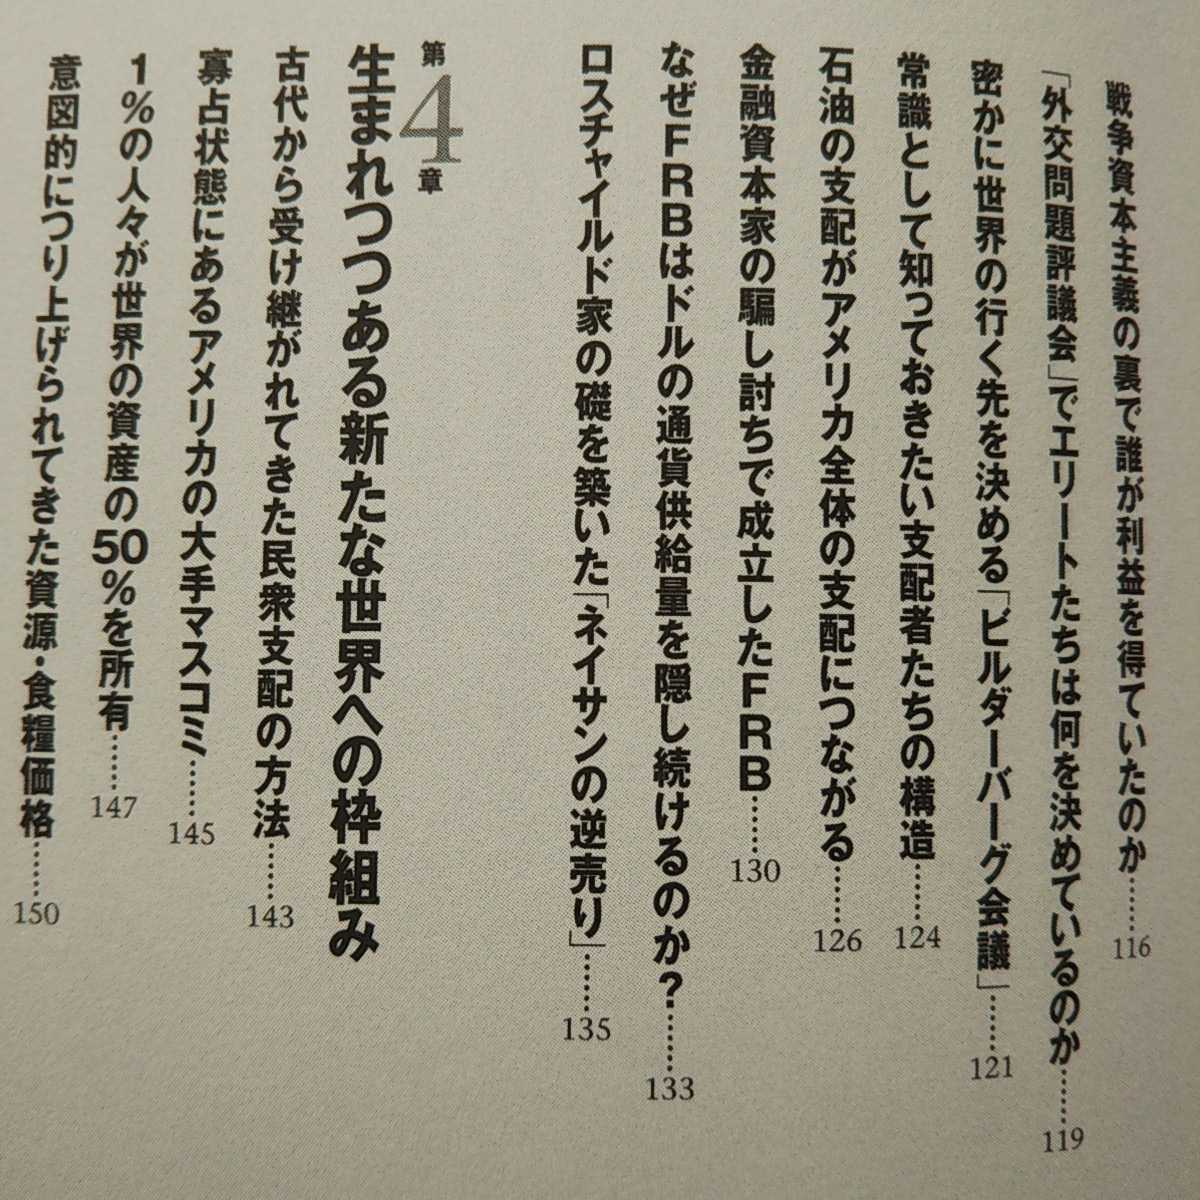 戦争資本主義の裏で誰が利益を得ていたのか……116
「外交問題評議会」でエリートたちは何を決めているのか……119
密かに世界の行く先を決める「ビルダーバーグ会議」……121
常識として知っておきたい支配者たちの構造……124
石油の支配がアメリカ全体の支配につながる……126
金融資本家の騙し討ちで成立したFRB……130
なぜFRBはドルの通貨供給量を隠し続けるのか?……133
ロスチャイルド家の礎を築いた「ネイサンの逆売り」……135
第4章
生まれつつある新たな世界への枠組み
古代から受け継がれてきた民衆支配の方法……143
寡占状態にあるアメリカの大手マスコミ……145
1%の人々が世界の資産の50%を所有……147
意図的につり上げられてきた資源・食糧価格……150